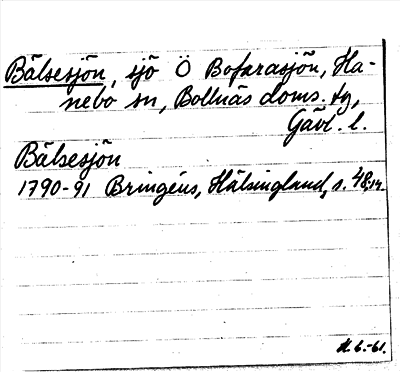 Bälsesjön, sjö Ö Bofarasjön, Ha-
nebo sn, Bollnäs doms. tg,
Gävl. l.
Bälsesjön
1790-91 Bringéus, Hälsingland, s. 48,
H. b.-61.